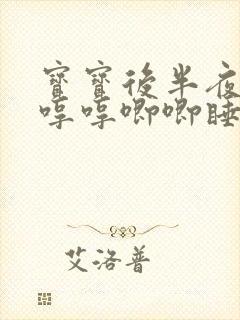 寶寶後半夜
哼哼唧唧睡
艾洛普